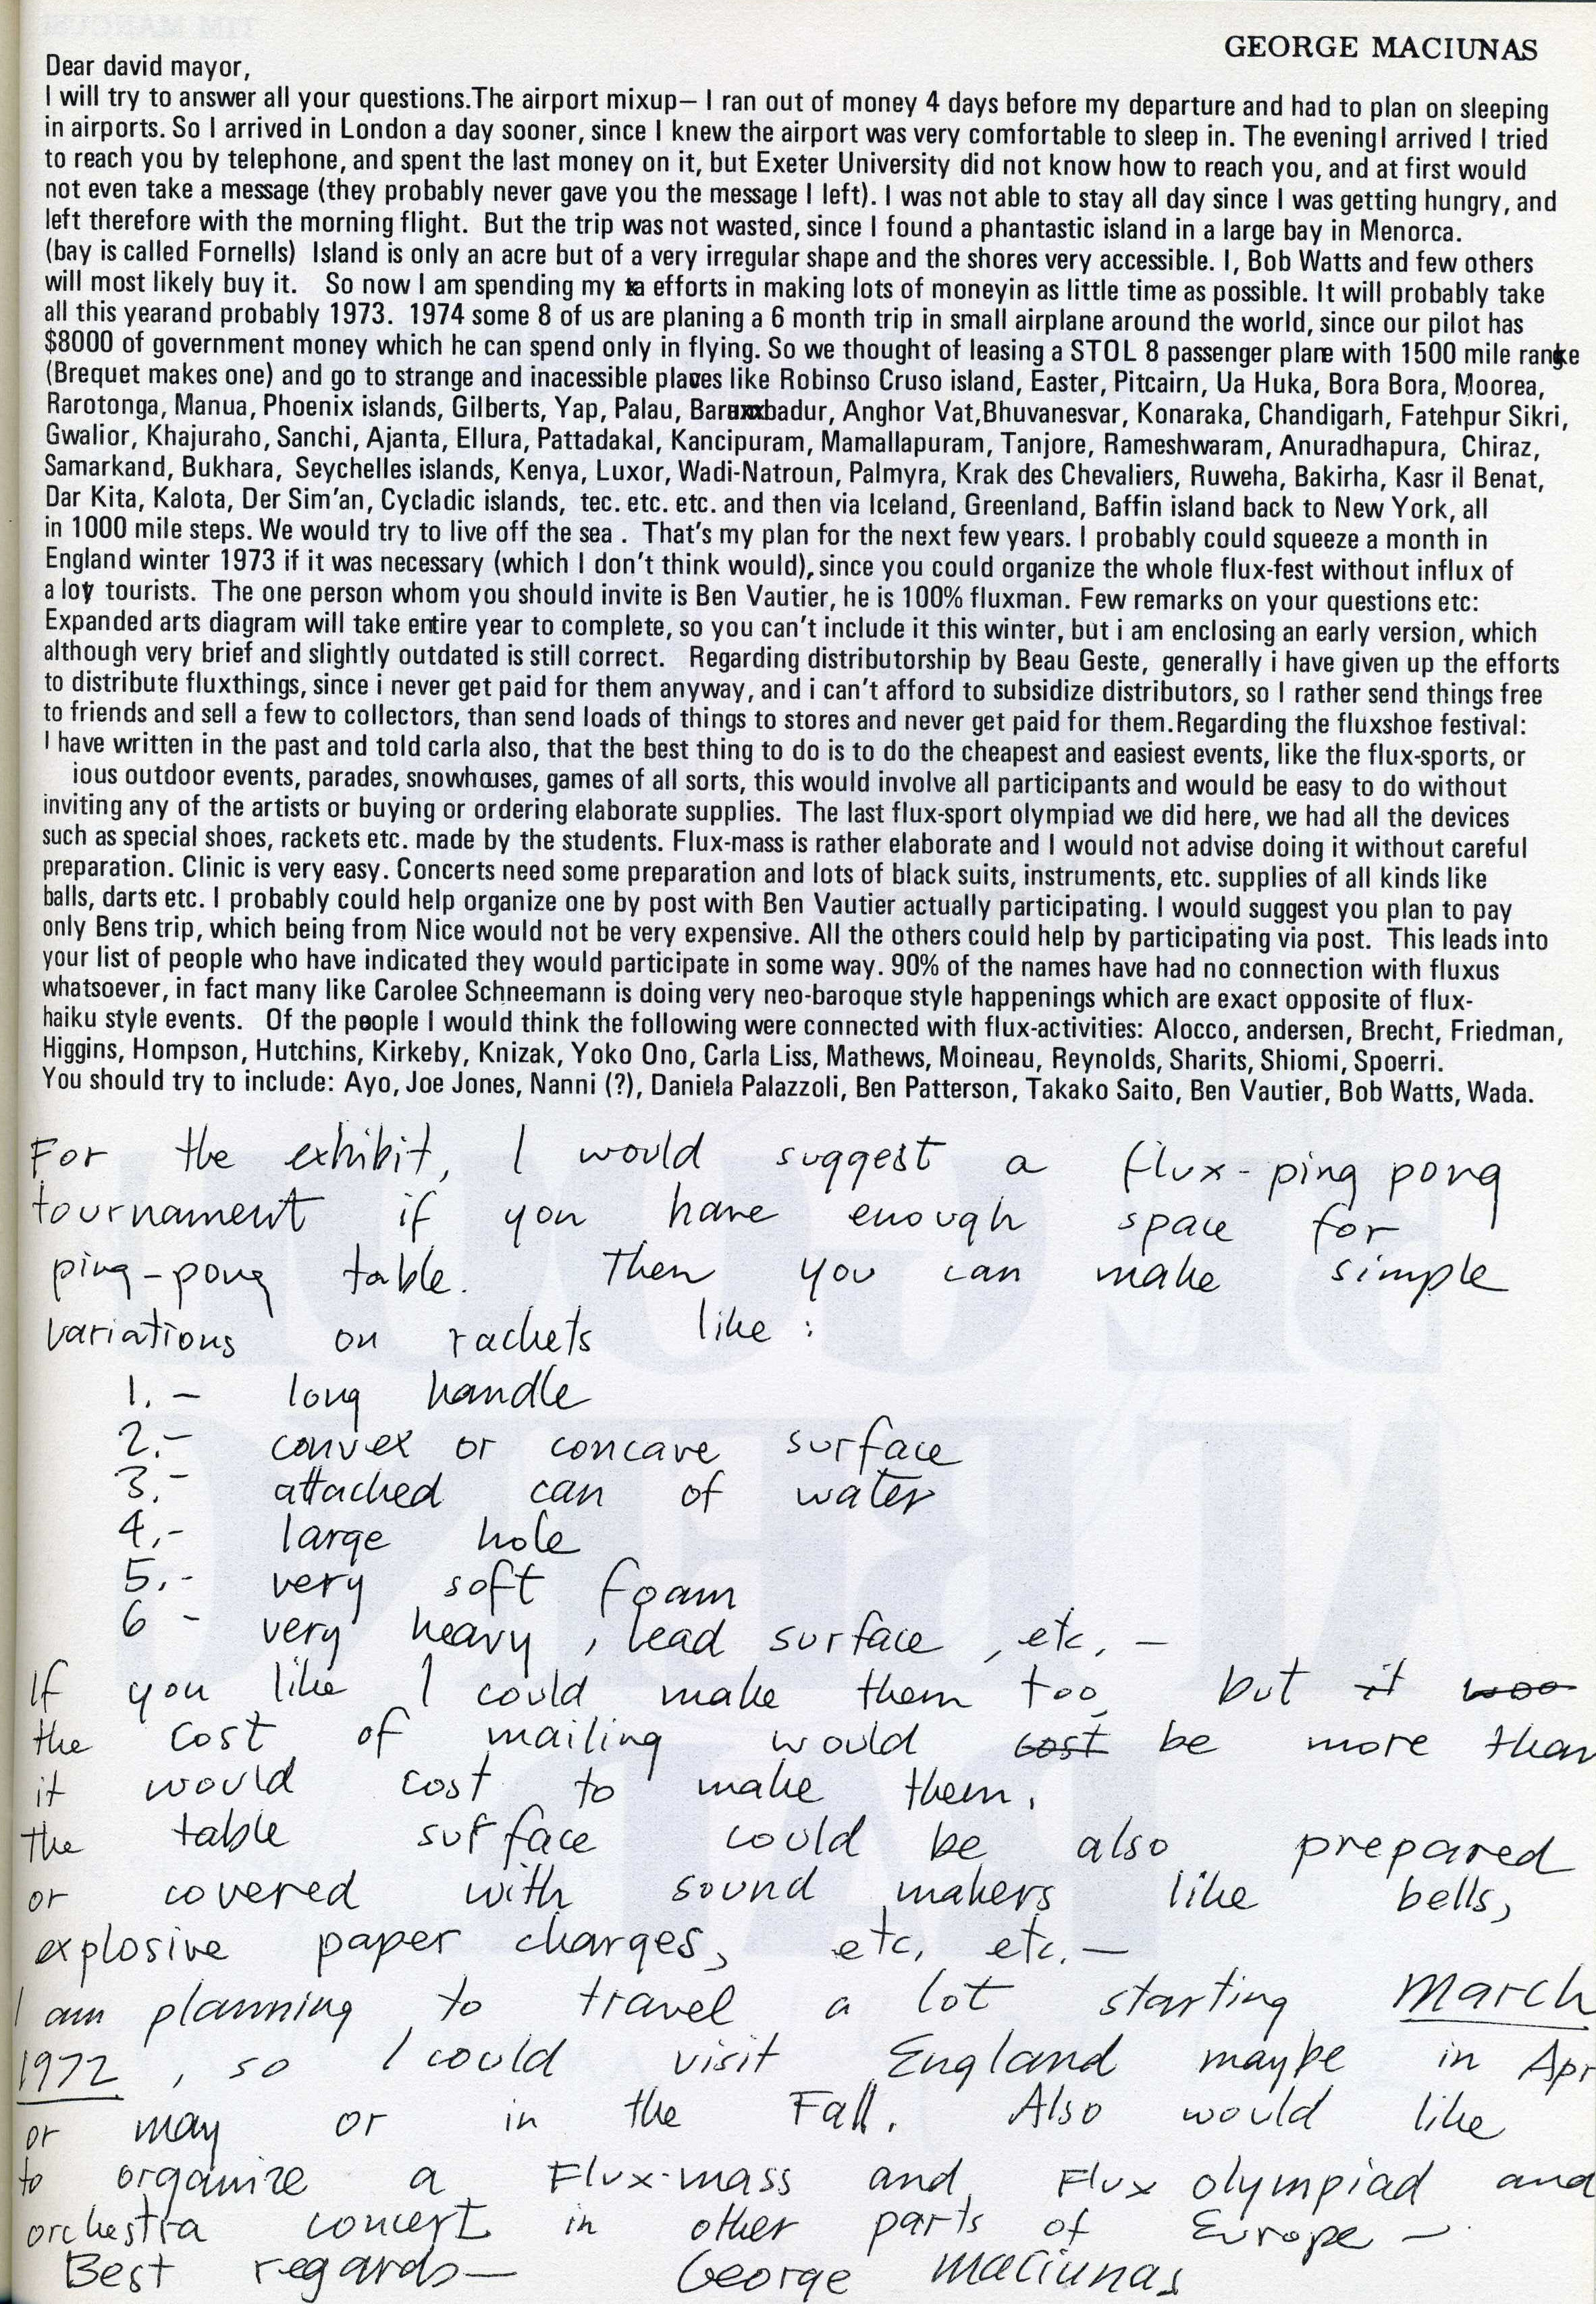 GEORGE MACIUNAS
Dear david mayor,
I will try to answer all your questions.The airport mixup— I ran out of money 4 days before my departure and had to plan on sleeping
in airports. So I arrived in London a day sooner, since I knew the airport was very comfortable to sleep in. The eveningI arrived I tried
to reach you by telephone, and spent the last money on it, but Exeter University did not know how to reach you, and at first would
not even take a message (they probably never gave you the message I left). I was not able to stay all day since I was getting hungry, and
left therefore with the morning flight. But the trip was not wasted, since I found a phantastic island in a large bay in Menorca.
(bay is called Fornells) Island is only an acre but of a very irregular shape and the shores very accessible. I, Bob Watts and few others
will most likely buy it. So now I am spending my efforts in making lots of moneyin as little time as possible. It will probably take
all this yearand probably 1973. 1974 some 8 of us are planing a 6 month trip in small airplane around the world, since our pilot has
$8000 of government money which he can spend only in flying. So we thought of leasing a STOL 8 passenger plane with 1500 mile range
(Brequet makes one) and go to strange and inacessible places like Robinso Cruso island, Easter, Pitcairn, Ua Huka, Bora Bora, Moorea,
Rarotonga, Manua, Phoenix islands, Gilberts, Yap, Palau, Baruxxbadur, Anghor Vat,Bhuvanesvar, Konaraka, Chandigarh, Fatehpur Sikri,
Gwalior, Khajuraho, Sanchi, Ajanta, Ellura, Pattadakal, Kancipuram, Mamallapuram, Tanjore, Rameshwaram, Anuradhapura, Chiraz,
Samarkand, Bukhara, Seychelles islands, Kenya, Luxor, Wadi-Natroun, Palmyra, Krak des Chevaliers, Ruweha, Bakirha, Kasr il Benat,
Dar Kita, Kalota, Der Sim'an, Cycladic islands, tec. etc. etc. and then via Iceland, Greenland, Baffin island back to New York, all
in 1000 mile steps. We would try to live off the sea . That's my plan for the next few years. I probably could squeeze a month in
England winter 1973 if it was necessary (which I don't think would), since you could organize the whole flux-fest without influx of
a lot tourists. The one person whom you should invite is Ben Vautier, he is 100% fluxman. Few remarks on your questions etc:
Expanded arts diagram will take entire year to complete, so you can't include it this winter, but i am enclosing an early version, which
although very brief and slightly outdated is still correct. Regarding distributorship by Beau Geste, generally i have given up the efforts
to distribute fluxthings, since i never get paid for them anyway, and i can't afford to subsidize distributors, so I rather send things free
to friends and sell a few to collectors, than send loads of things to stores and never get paid for them.Regarding the fluxshoe festival:
I have written in the past and told carla also, that the best thing to do is to do the cheapest and easiest events, like the flux-sports, or
ious outdoor events, parades, snowhouses, games of all sorts, this would involve all participants and would be easy to do without
inviting any of the artists or buying or ordering elaborate supplies. The last flux-sport olympiad we did here, we had all the devices
such as special shoes, rackets etc. made by the students. Flux-mass is rather elaborate and I would not advise doing it without careful
preparation. Clinic is very easy. Concerts need some preparation and lots of black suits, instruments, etc. supplies of all kinds like
balls, darts etc. I probably could help organize one by post with Ben Vautier actually participating. I would suggest you plan to pay
only Bens trip, which being from Nice would not be very expensive. All the others could help by participating via post. This leads into
your list of people who have indicated they would participate in some way. 90% of the names have had no connection with fluxus
whatsoever, in fact many like Carolee Schneemann is doing very neo-baroque style happenings which are exact opposite of flux-
haiku style events. Of the people I would think the following were connected with flux-activities: Alocco, andersen, Brecht, Friedman,
Higgins, Hompson, Hutchins, Kirkeby, Knizak, Yoko Ono, Carla Liss, Mathews, Moineau, Reynolds, Sharits, Shiomi, Spoerri.
You should try to include: Ayo, Joe Jones, Nanni (?), Daniela Palazzoli, Ben Patterson, Takako Saito, Ben Vautier, Bob Watts, Wada.
For the exhibit, I would suggest a flux-ping pong
tournament if you have enough space for
ping-pong table. Then you can make simple
variations on rackets like :
1. — long handle
2.— convex or concave surface
3.— attached can of water
4.- large hole
5.- very soft foam
6 - very heavy, lead surface, etc. —
If you like I could make them too, but it woo
the cost of mailing would cost be more than
it would cost to make them.
the table surface could be also prepared
or covered with sound makers like bells,
explosive paper charges, etc, etc.—
I am planning to travel a lot starting March
1972 , so I could visit England maybe in Apr
or may or in the Fall. Also would like
to organize a Flux-mass and Flux olympiad and
orchestra concert in other parts of Europe —
Best regards— George Maciunas